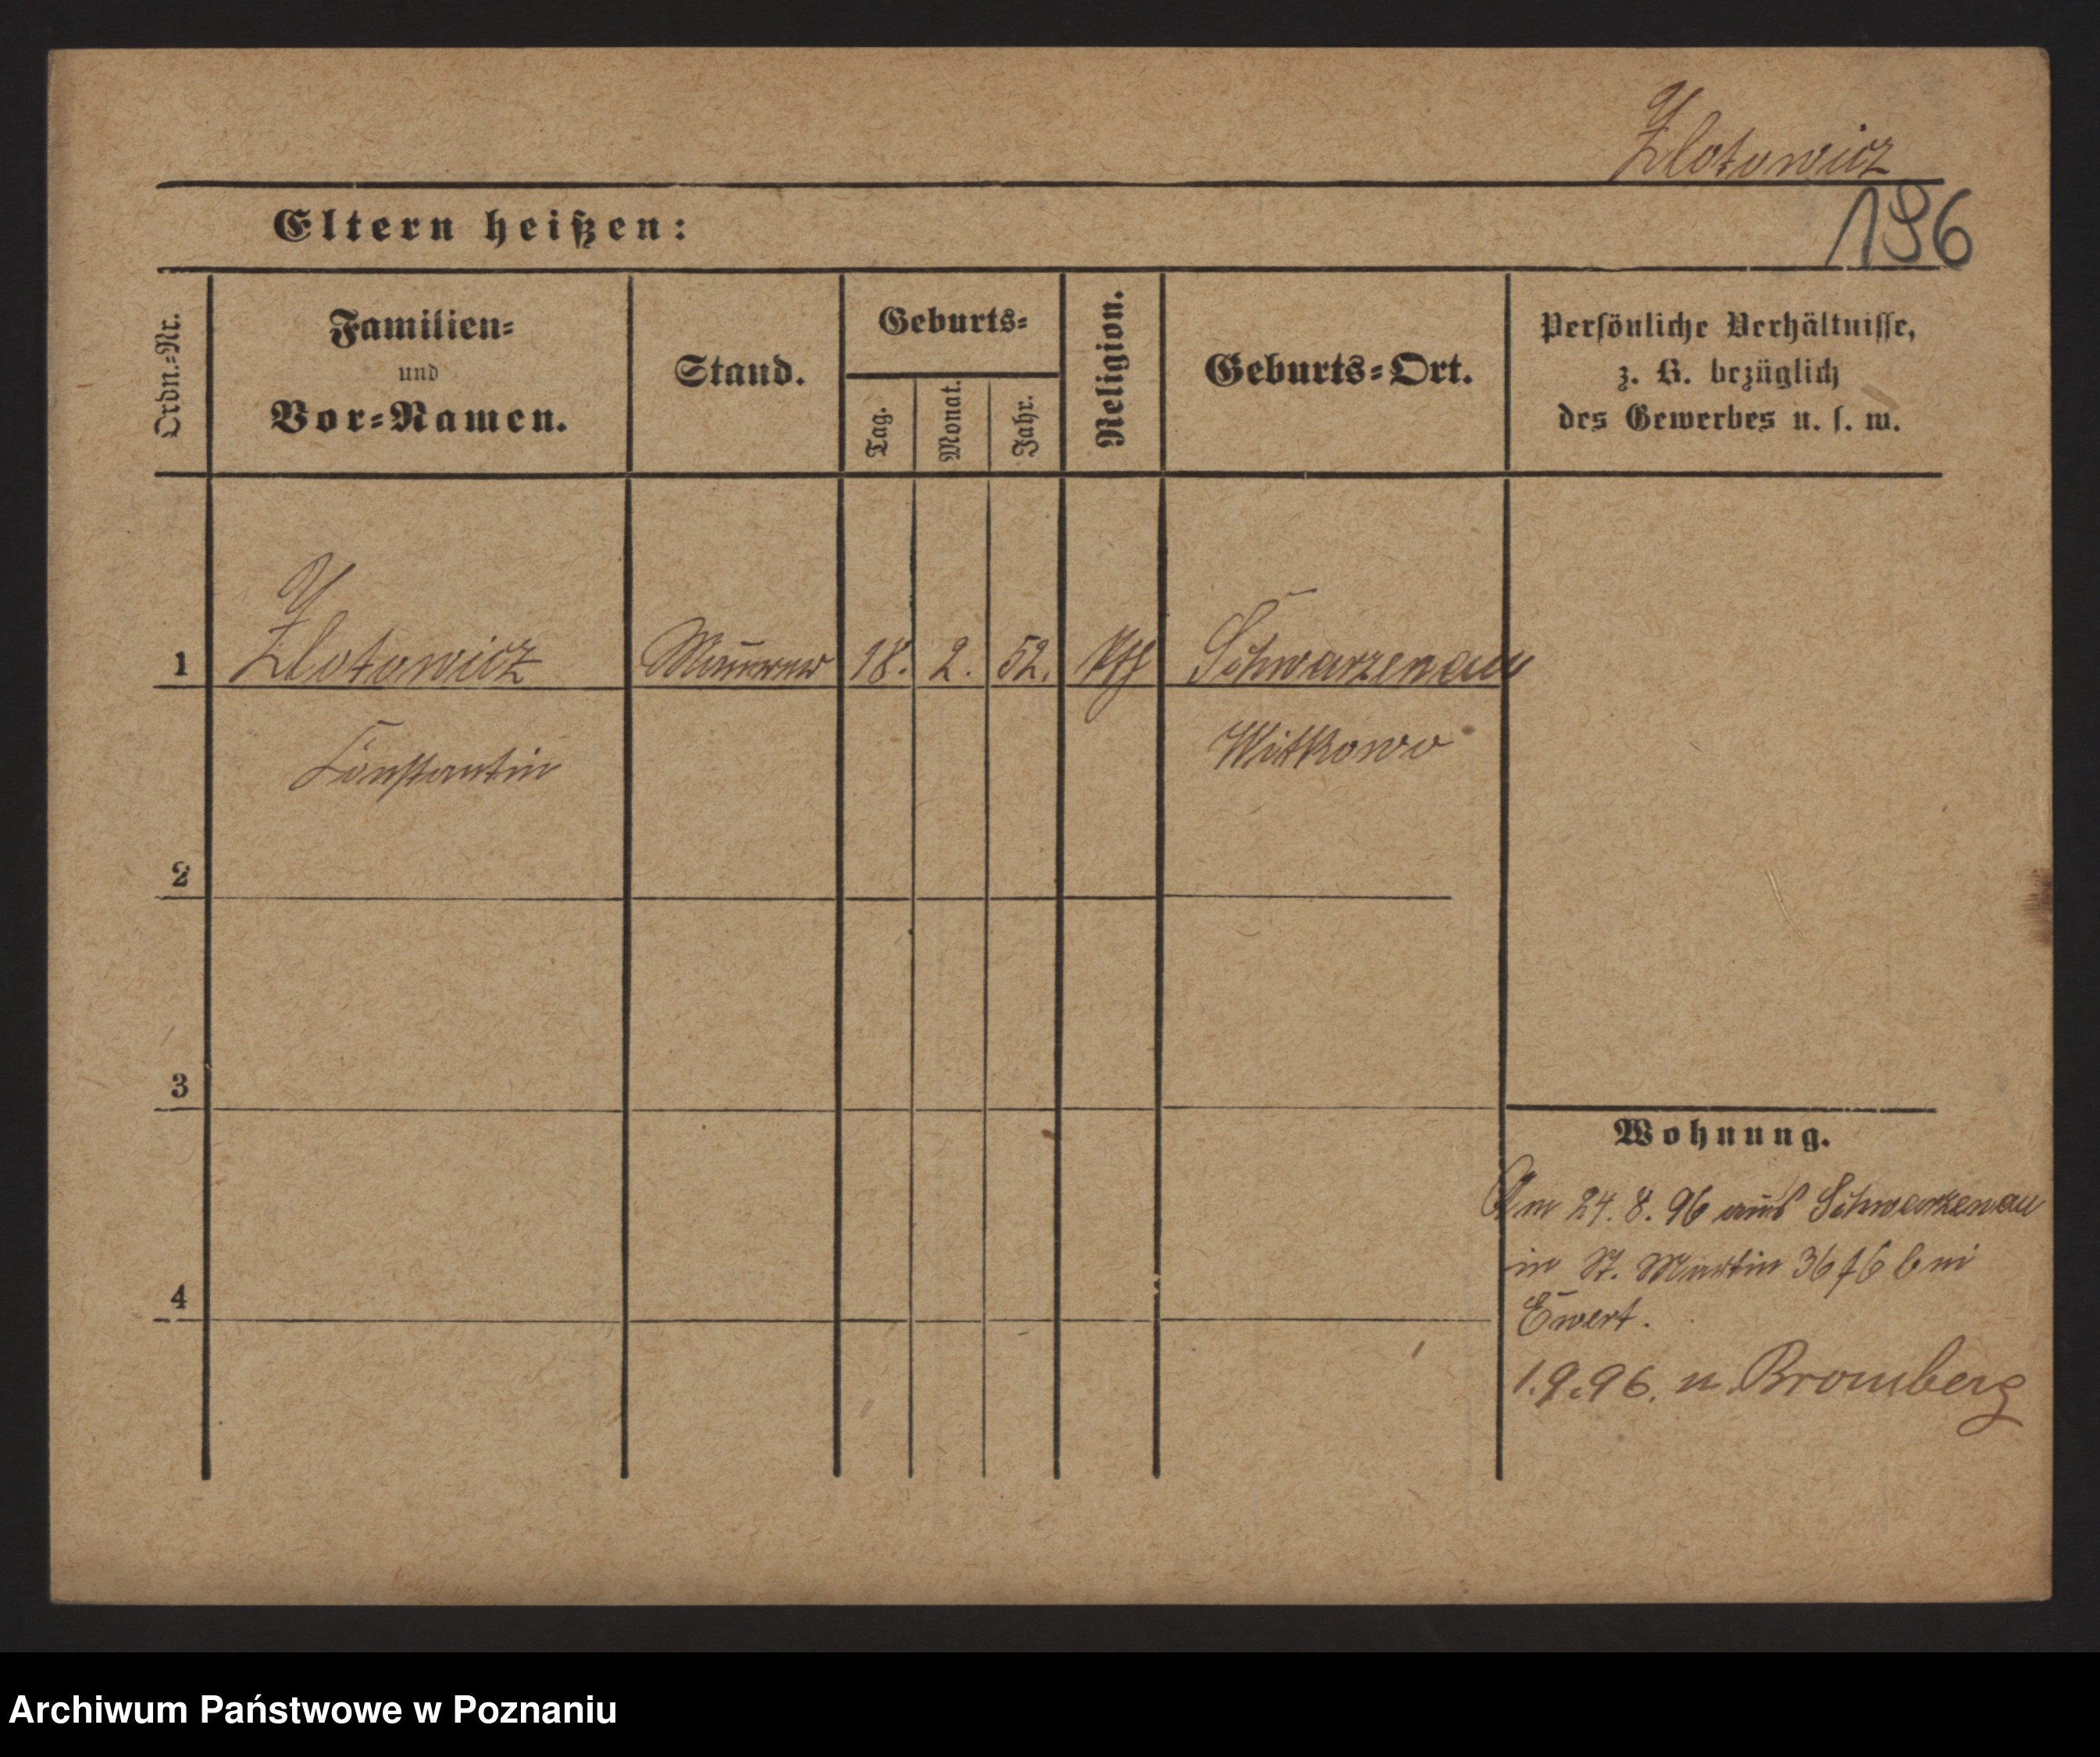 Zlotowicz
196
Eltern heißen:
Ordn.=Nr.
Familien=
und
Vor=Namen.
Stand.
Geburts=
Tag.
Monat.
Jahr.
Religion.
Geburts=Ort.
Persönliche Verhältnisse,
z. B. bezüglich
des Gewerbes u. s. w.
1 Zlotowicz Maurer 18. 2. 52. Kth Schwarzenau
Constantin Witkowo
2
3
4
Wohnung.
Am 24. 8. 96 aus Schwarzenau
in St. Martin 36 bei
Ewert.
1.9.96. n. Bromberg
Archiwum Państwowe w Poznaniu